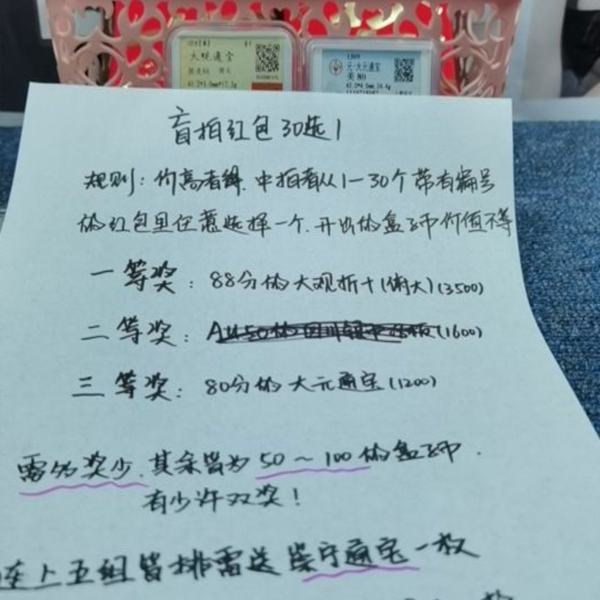 大观通宝
元·大元通宝
美80
盲拍红包30选1
规则：价高者得．中拍者从1—30个带有编号
的红包里任意选择一个．开出的盒子币价值不等
一等奖：88分的大观折十(俯大)(3500)
二等奖：(1600)
三等奖：80分的大元通宝(1200)
雷多奖少．其余皆为50～100的盒子币．
有少许双奖！
车上五组皆排雷送崇宁通宝一枚